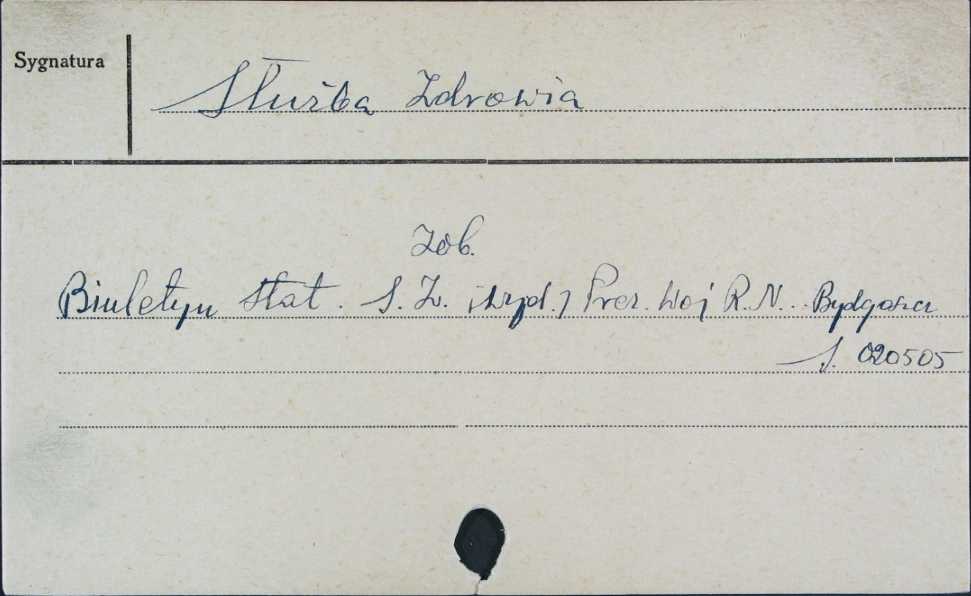 Sygnatura
Służba Zdrowia
Zob.
Biuletyn Stat. S. Z. (wyd.) Prez. Woj R. N. Bydgoszcz
S. 020505